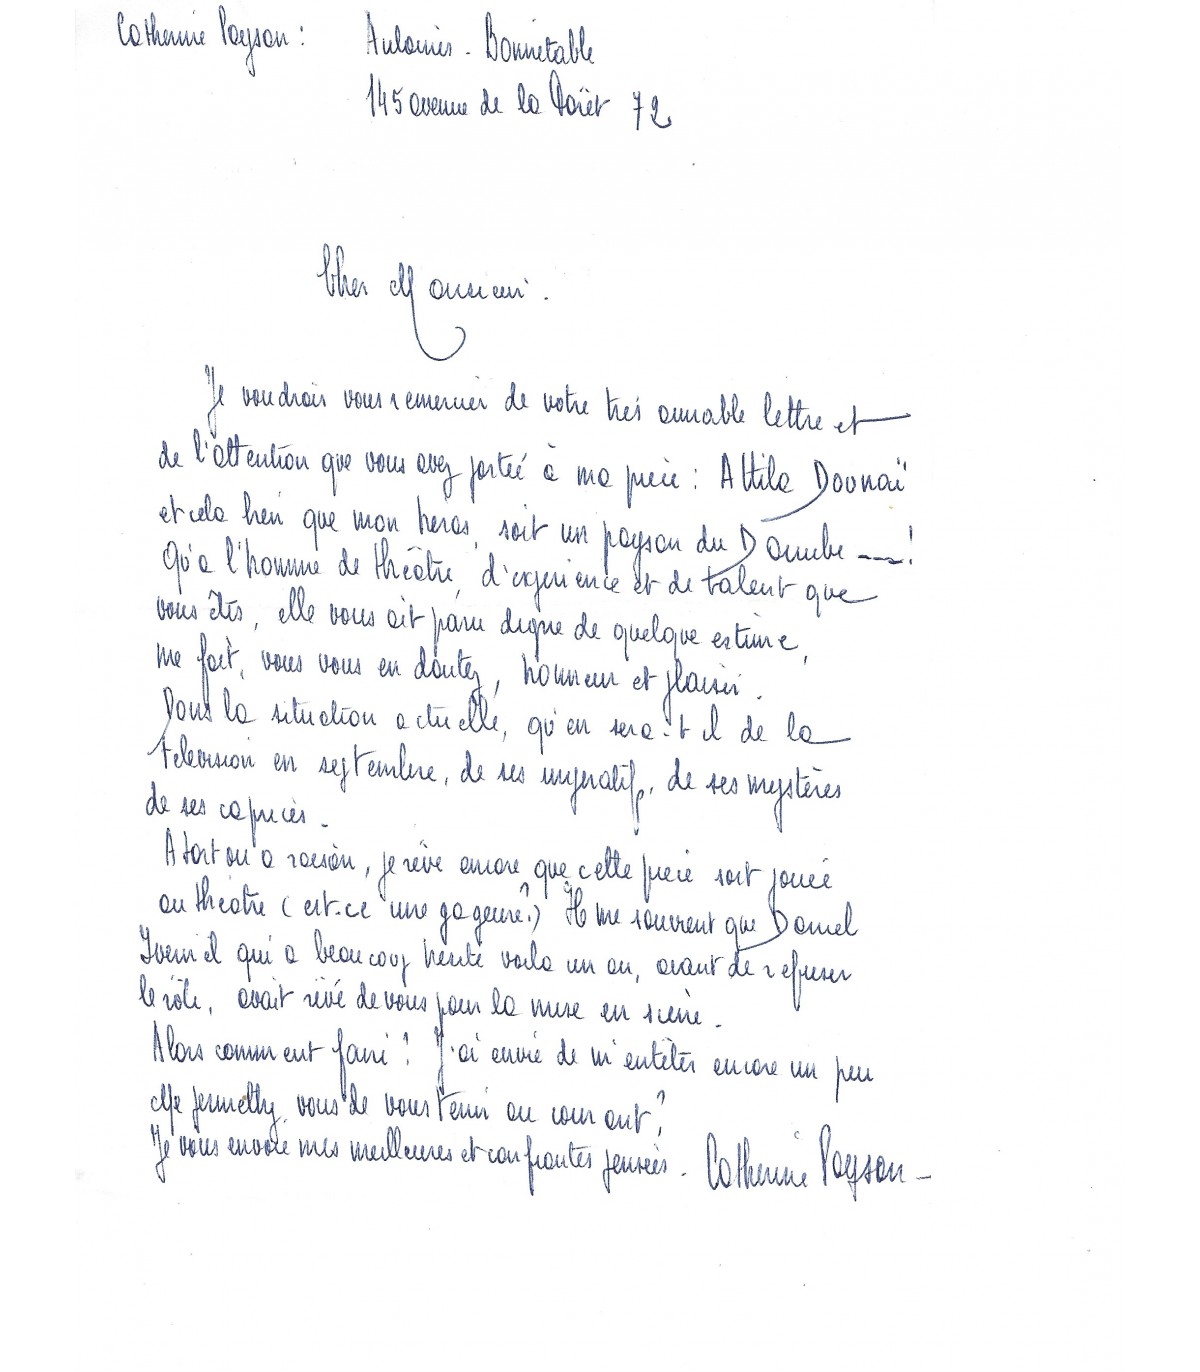 Catherine Paysan : Aulaines - Bonnétable
145 avenue de la Forêt 72
Cher Monsieur.
Je voudrais vous remercier de votre très aimable lettre et
de l'attention que vous avez portée à ma pièce : Attila Dounaï
et cela bien que mon héros, soit un paysan du Danube ---!
Qu'à l'homme de théâtre, d'expérience et de talent que
vous êtes, elle vous ait paru digne de quelque estime,
me fait, vous vous en doutez, honneur et plaisir.
Dans la situation actuelle, qu'en sera-t il de la
télévision en septembre, de ses impératifs, de ses mystères
de ses caprices.
A tort ou à raison, je rêve encore que cette pièce soit jouée
au théâtre (est-ce une gageure?) Il me souvient que Daniel
Ivernel qui a beaucoup hésité voilà un an, avant de refuser
le rôle, avait rêvé de vous pour la mise en scène.
Alors comment faire? J'ai envie de m'entêter encore un peu
Me permettez vous de vous tenir au courant?
Je vous envoie mes meilleures et confiantes pensées. Catherine Paysan -